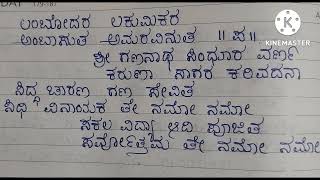 ಲಂಬೋದರ ಲಕುಮಿಕರ
ಅಂಬಾಸುತ ಅಮರವಿನುತ ॥ಪ॥
ಶ್ರೀ ಗಣನಾಥ ಸಿಂಧೂರ ವರ್ಣ
ಕರುಣಾ ಸಾಗರ ಕರಿವದನಾ
ಸಿದ್ಧ ಚಾರಣ ಗಣ ಸೇವಿತ
ಸಿಧಿ ವಿನಾಯಕ ತೇ ನಮೋ ನಮೋ
ಸಕಲ ವಿದ್ಯಾ ಆದಿ ಪೂಜಿತ
ಸರ್ವೋತ್ತಮ ತೇ ನಮೋ ನಮೋ
KINEMASTER